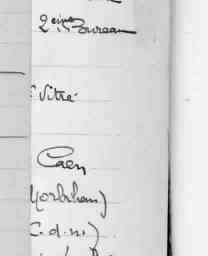 2ème Bureau
Vitré
Caen
Morbihan)
C.d.n.)